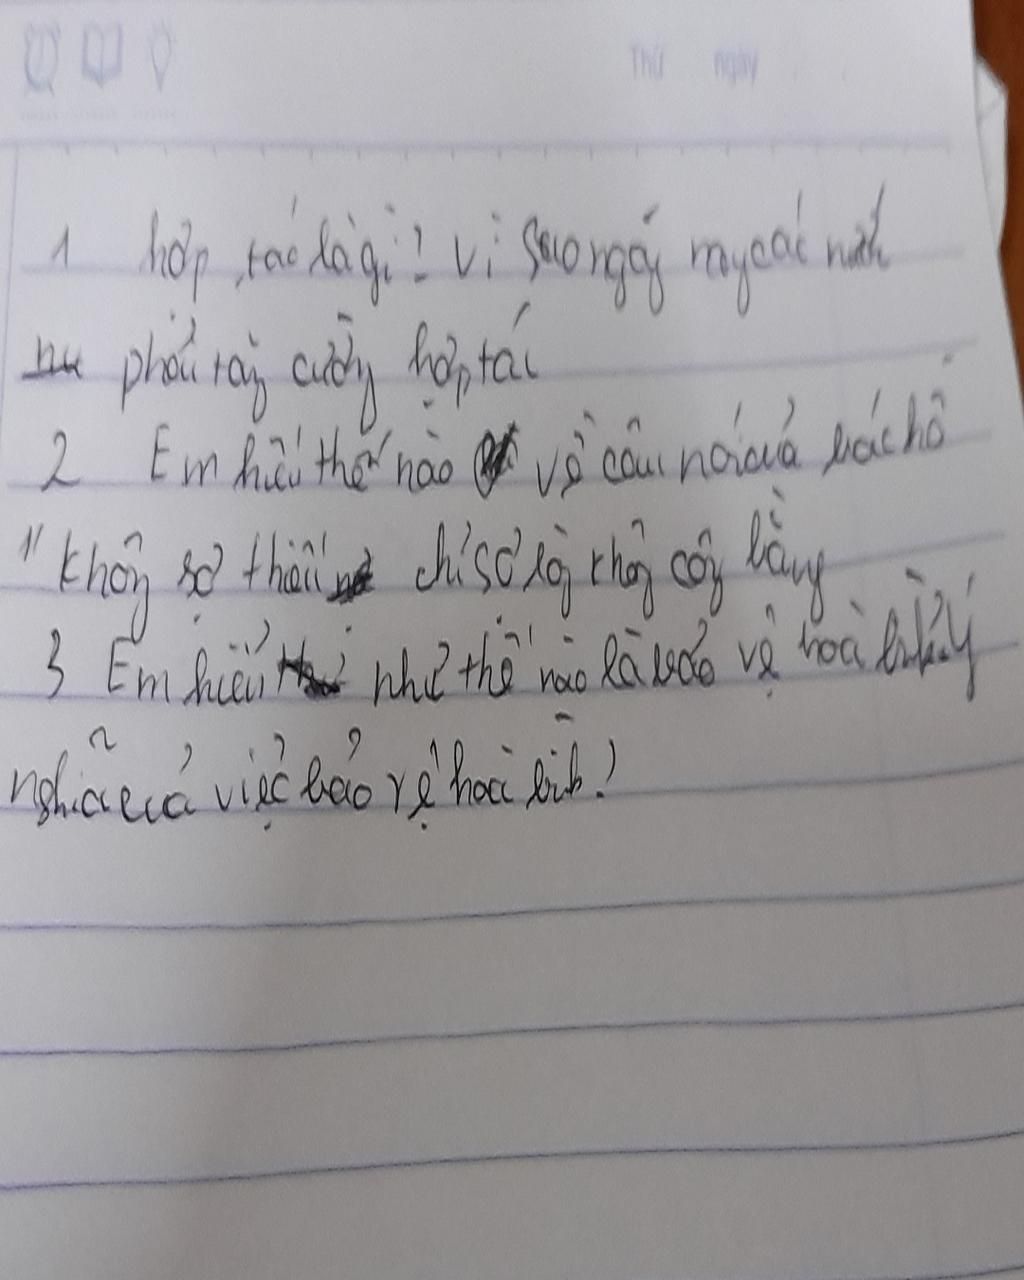 Thứ ngày
1 hợp tác là gì? Vì sao ngày nay các nước
phải tăng cường hợp tác
2 Em hiểu thế nào về câu nói của bác hồ
"không sợ thiếu chỉ sợ không công bằng
3 Em hiểu như thế nào là bảo vệ hoà bình ý
nghĩa của việc bảo vệ hoà bình?